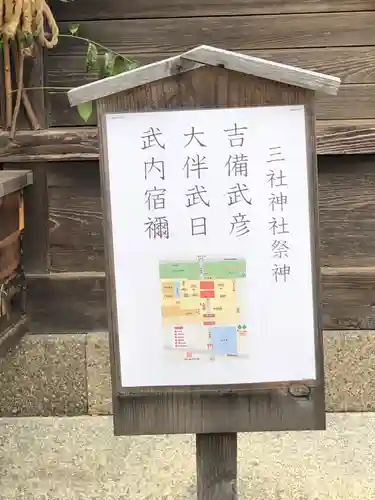 三社神社祭神
吉備武彦
大伴武日
武内宿禰